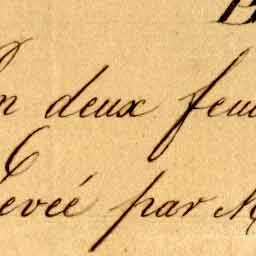 B
En deux feu
levée par M